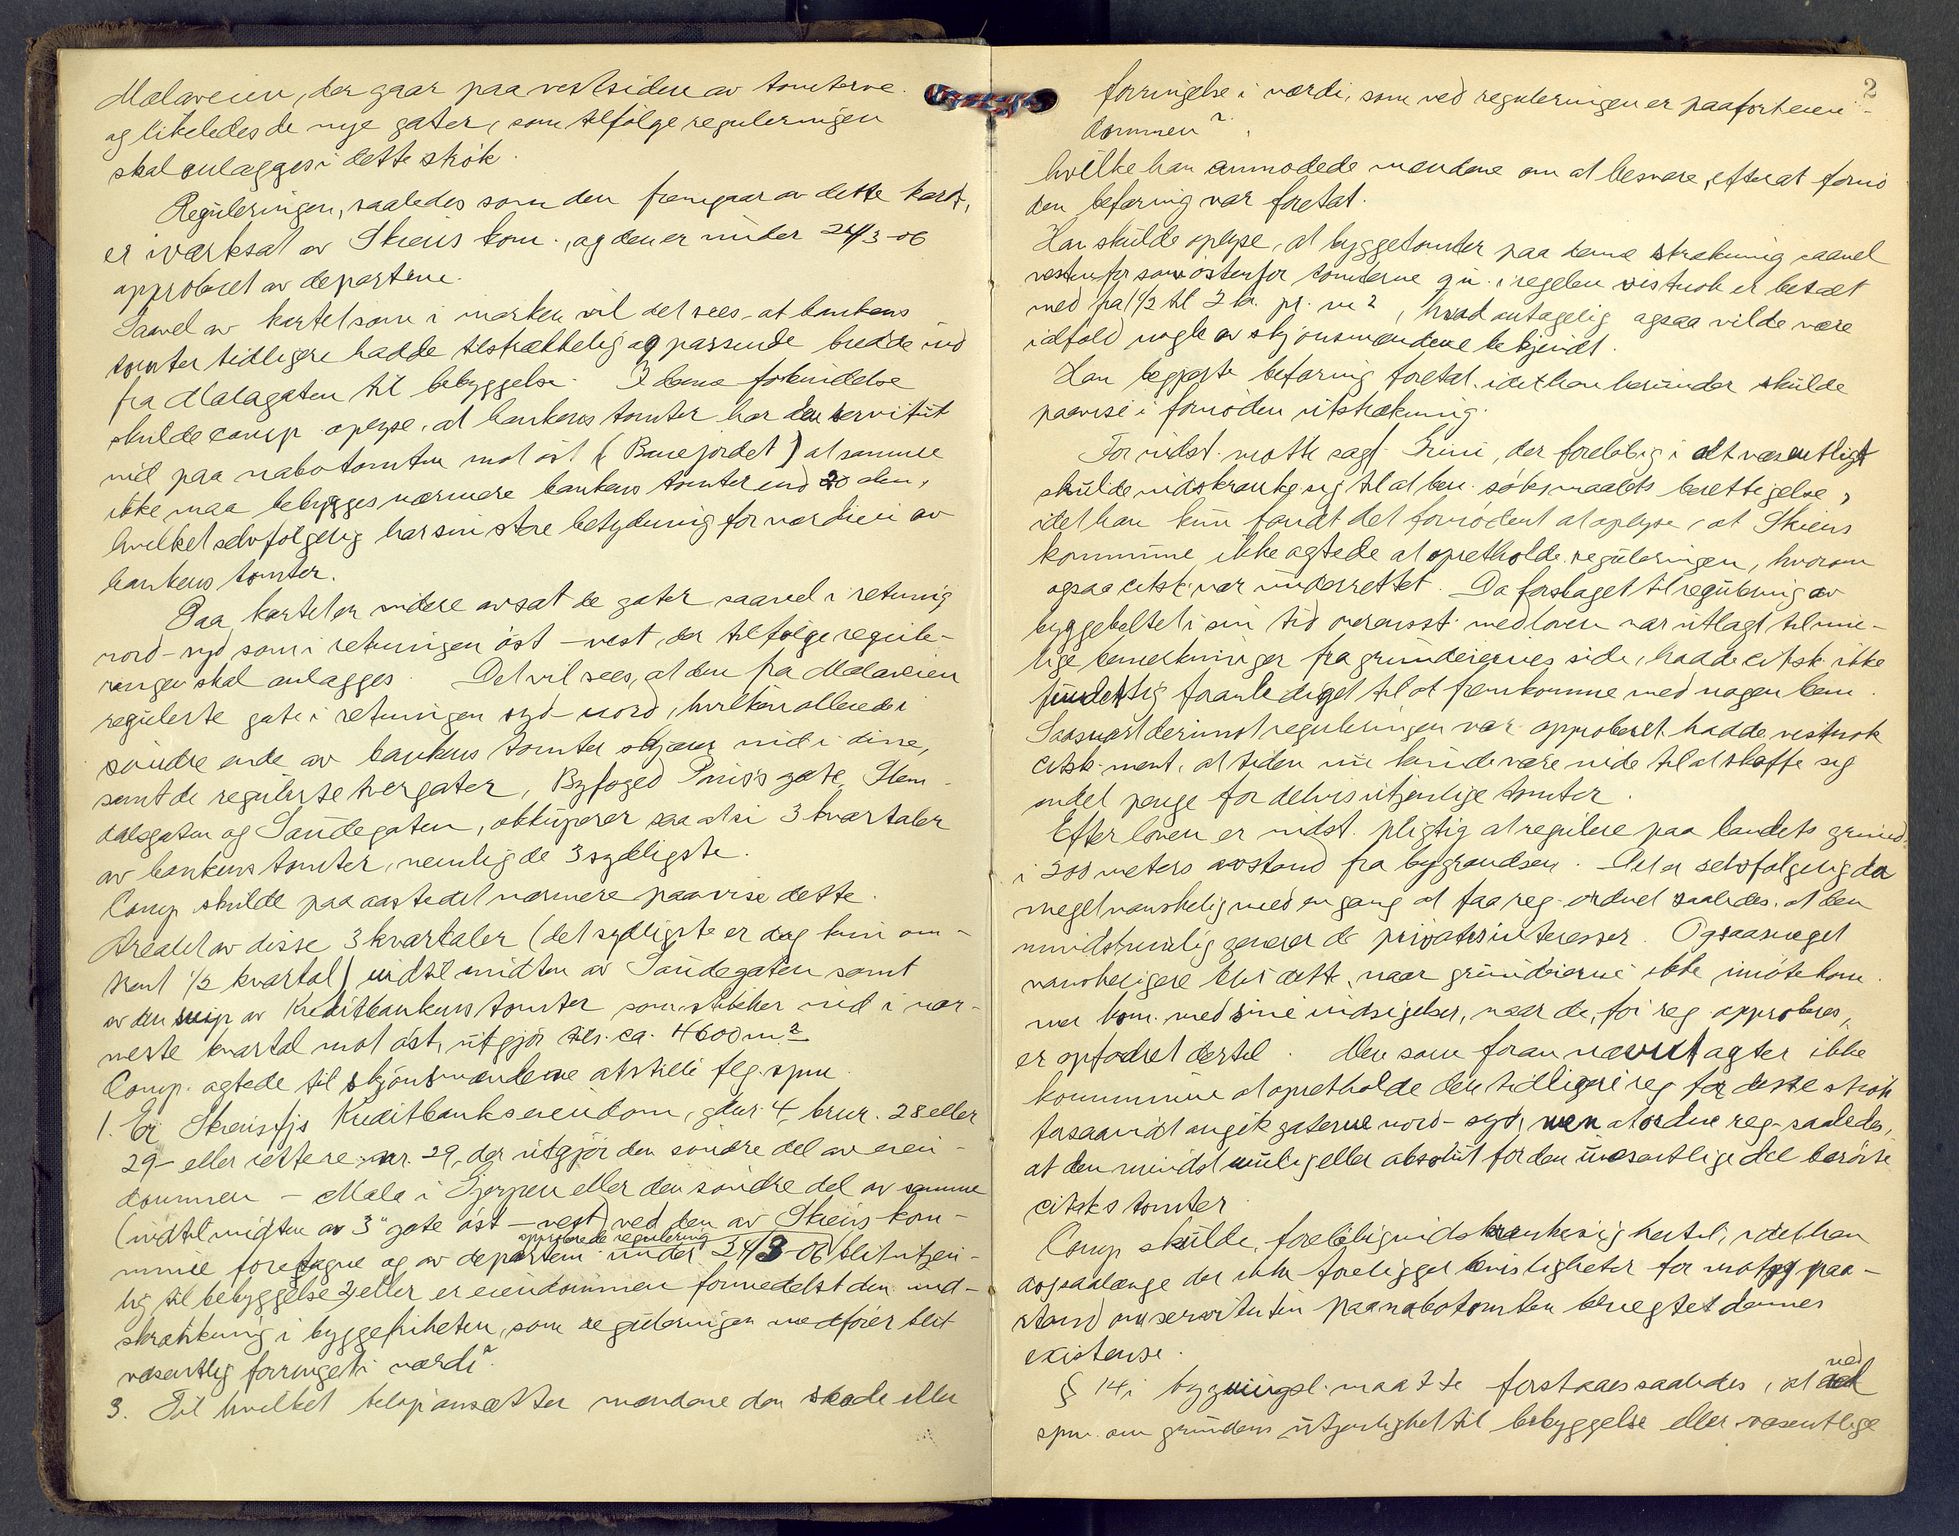 Mælaveien, der gaar paa vestsiden av tomterne
og likeledes de nye gater, som tilfølge reguleringen
skal anlægges i dette strøk.
Reguleringen, saaledes som den fremgaar av dette kart,
er iværksat av Skiens kom., og den er under 24/3-06
approberet av departem.
Saavel av kartet som i marken vil det sees, at bankens
tomter tidligere hadde tilstrækkelig og passende bredde ind
fra Mælagaten til bebyggelse. I denne forbindelse
skulde comp. oplyse, at bankens tomter har den servitut
ind paa nabotomten mot øst (Banejordet) at samme
ikke maa bebygges nærmere bankens tomter end 20 alen,
hvilket selvfølgelig har sin store betydning for værdien av
bankens tomter.
Paa kartet er videre avsat de gater saavel i retning
nord-syd som i retningen øst-vest, der tilfølge regule-
ringen skal anlægges. Det vil sees, at den fra Mælaveien
regulerte gate i retningen syd-nord, hvilken allerede i
søndre ende av bankens tomter skjærer ind i disse,
samt de regulerte tvergater, Byfoged Preus's gate, Sten-
dalsgaten og Saudegaten, okkuperer saa at si 3 kvartaler
av bankens tomter, nemlig de 3 sydligste.
Comp. skulde paa aastedet nærmere paavise dette.
Arealet av disse 3 kvartaler (det sydligste er dog kun om-
trent 1/2 kvartal) indtil midten av Saudegaten samt
av den snip av Kreditbankens tomter som stikker ind i nær-
meste kvartal mot øst, utgjør ca. 4600 m2
Comp. agtede til skjønsmændene at stille flg. spm.
1. Er Skiensfjs Kreditbanks eiendom, gnr. 4, brnr. 28 eller
29 - eller rettere nr. 29, der utgjør den søndre del av eien-
dommen - Mæla i Gjerpen eller den søndre del av samme
(indtil midten av 3" gate øst-vest) ved den av Skiens kom-
mune foretagne og av departem. under 24/3-06 approberede regulering blit utjen-
lig til bebyggelse 2) eller er eiendommen formedelst den ind-
skrænkning i byggefriheten, som reguleringen medfører blit
væsentlig forringet i værdi?
3. Til hvilket beløp ansætter mændene den skade eller
2
forringelse i værdi, som ved reguleringen er paaført eien-
dommen?
hvilke han anmodede mændene om at besvare, efterat fornø
den befaring var foretat.
Han skulde oplyse, at byggetomter paa denne strækning saavel
vestenfor som østenfor tomterne i regelen vistnok er betalt
med fra 1 1/2 til 2 kr. pr. m2, hvad antagelig ogsaa vilde være
ialfald nogle av skjønsmændene bekjendt.
Han begjærte befaring foretat, idet han herunder skulde
paavise i fornøden utstrækning.
For indst. møtte sagf. Grini, der foreløbig i alt væsentligt
skulde indskrænke sig til at ben. søksmaalets berettigelse,
idet han kun fandt det fornødent at oplyse, at Skiens
kommune ikke agtede at opretholde reguleringen, hvorom
ogsaa citsk. var underrettet. Da forslaget til regulering av
byggebeltet i sin tid overensst. med loven var utlagt til mu-
lige bemerkninger fra grundeiernes side, hadde citsk. ikke
fundet sig foranlediget til at fremkomme med nogen bem.
Saasnart derimot reguleringen var approberet hadde vistnok
citsk. ment, at tiden nu kunde være inde til at skaffe sig
endel penge for delvis utjenlige tomter.
Efter loven er indst. pligtig at regulere paa landets grund
i 200 meters avstand fra bygrændsen. Det er selvfølgelig da
meget vanskelig med en gang at faa reg. ordnet saaledes, at den
mindst mulig generer de private interesser. Ogsaa meget
vanskeligere blir dette, naar grundeierne ikke imøtekom-
mer kom. med sine indsigelser, naar de, før reg. approberes,
er opfodret dertil. Men som foran nævnt agter ikke
kommune at opretholde den tidligere reg. for dette strøk
forsaavidt angik gaterne nord-syd, men at ordne reg. saaledes,
at den mindst mulig eller absolut for den uvæsentlige del berører
citsks tomter.
Comp. skulde foreløbig indskrænke sig hertil, idet han
dog saalænge der ikke foreligger bevisligheter for motpp. paa-
stand om servituten paa nabotomten benegtet dennes
existense.
§ 14 i bygningsl. maatte forstaaes saaledes, at ved
spm. om grundens utjenlighet til bebyggelse eller væsentlige